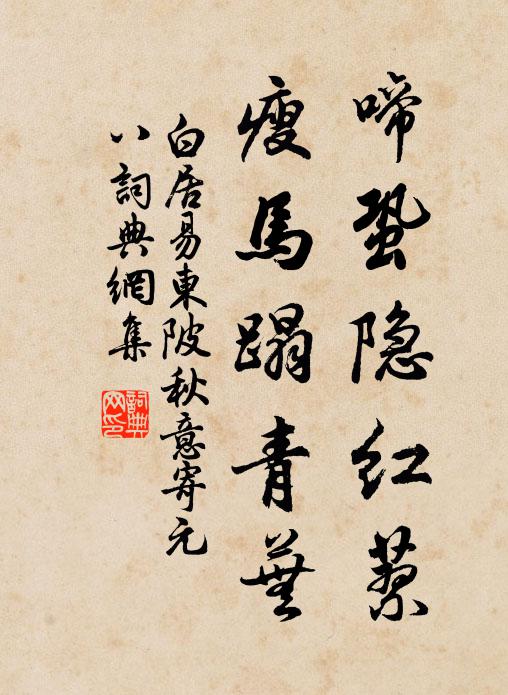 啼蛩隐红蓼
瘦馬蹋青蕪
白居易東陂秋意寄元
八詞典網集
詞典网印